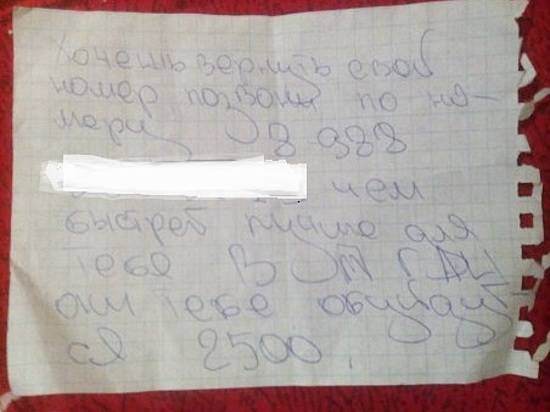 Хочешь вернуть свой
номер позвони по но-
меру 8 988
чем
быстрей лучше для
тебе В
они тебе обуйдут-
ся 2500.